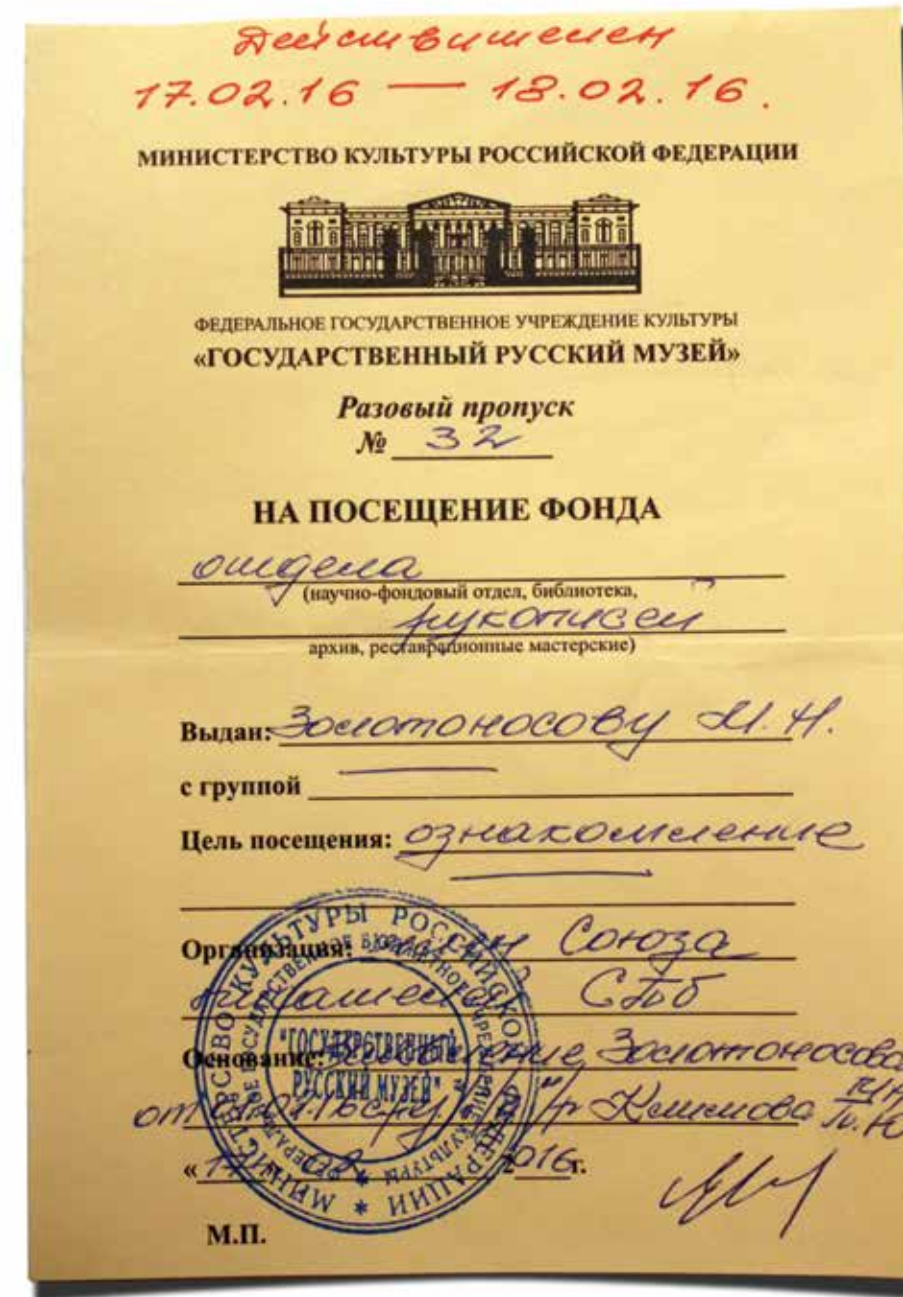 Действителен
17.02.16 — 18.02.16.
МИНИСТЕРСТВО КУЛЬТУРЫ РОССИЙСКОЙ ФЕДЕРАЦИИ
ФЕДЕРАЛЬНОЕ ГОСУДАРСТВЕННОЕ УЧРЕЖДЕНИЕ КУЛЬТУРЫ
«ГОСУДАРСТВЕННЫЙ РУССКИЙ МУЗЕЙ»
Разовый пропуск
№ 32
НА ПОСЕЩЕНИЕ ФОНДА
отдела
(научно-фондовый отдел, библиотека,
рукописей
архив, реставрационные мастерские)
Выдан: Золотоносову М.Н.
с группой
Цель посещения: ознакомление
Организация: член Союза
писателей СПб
Основание: заявление Золотоносова
от Климова
« » 2016г.
М.П.
МИНИСТЕРСТВО КУЛЬТУРЫ РОССИЙСКОЙ ФЕДЕРАЦИИ
ФЕДЕРАЛЬНОЕ ГОСУДАРСТВЕННОЕ БЮДЖЕТНОЕ УЧРЕЖДЕНИЕ КУЛЬТУРЫ
"ГОСУДАРСТВЕННЫЙ
РУССКИЙ МУЗЕЙ"